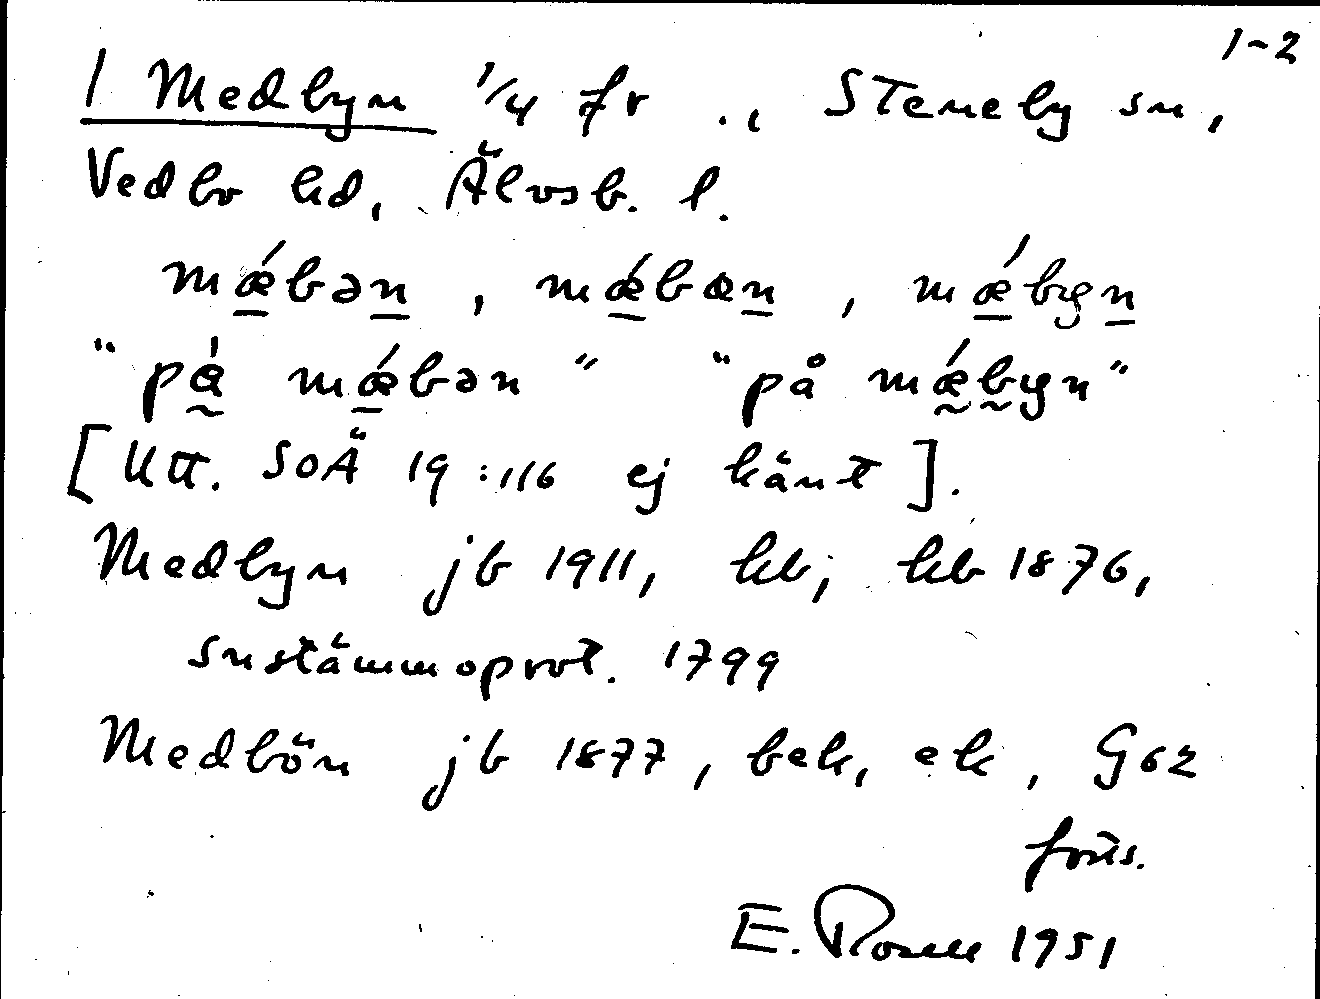 1-2
1 Medbyn 1/4 fr ., Steneby sn,
Vedbo hd, Älvsb. l.
mǽbən, mǽbœn, mǽbyn
"pá mǽbən" "på mǽbyn"
[Utt. SOÄ 19:116 ej känt].
Medbyn jb 1911, kb; hb 1876,
snstämmoprot. 1799
Medbön jb 1877, bek, ek, G62
forts.
E. Rosell 1951